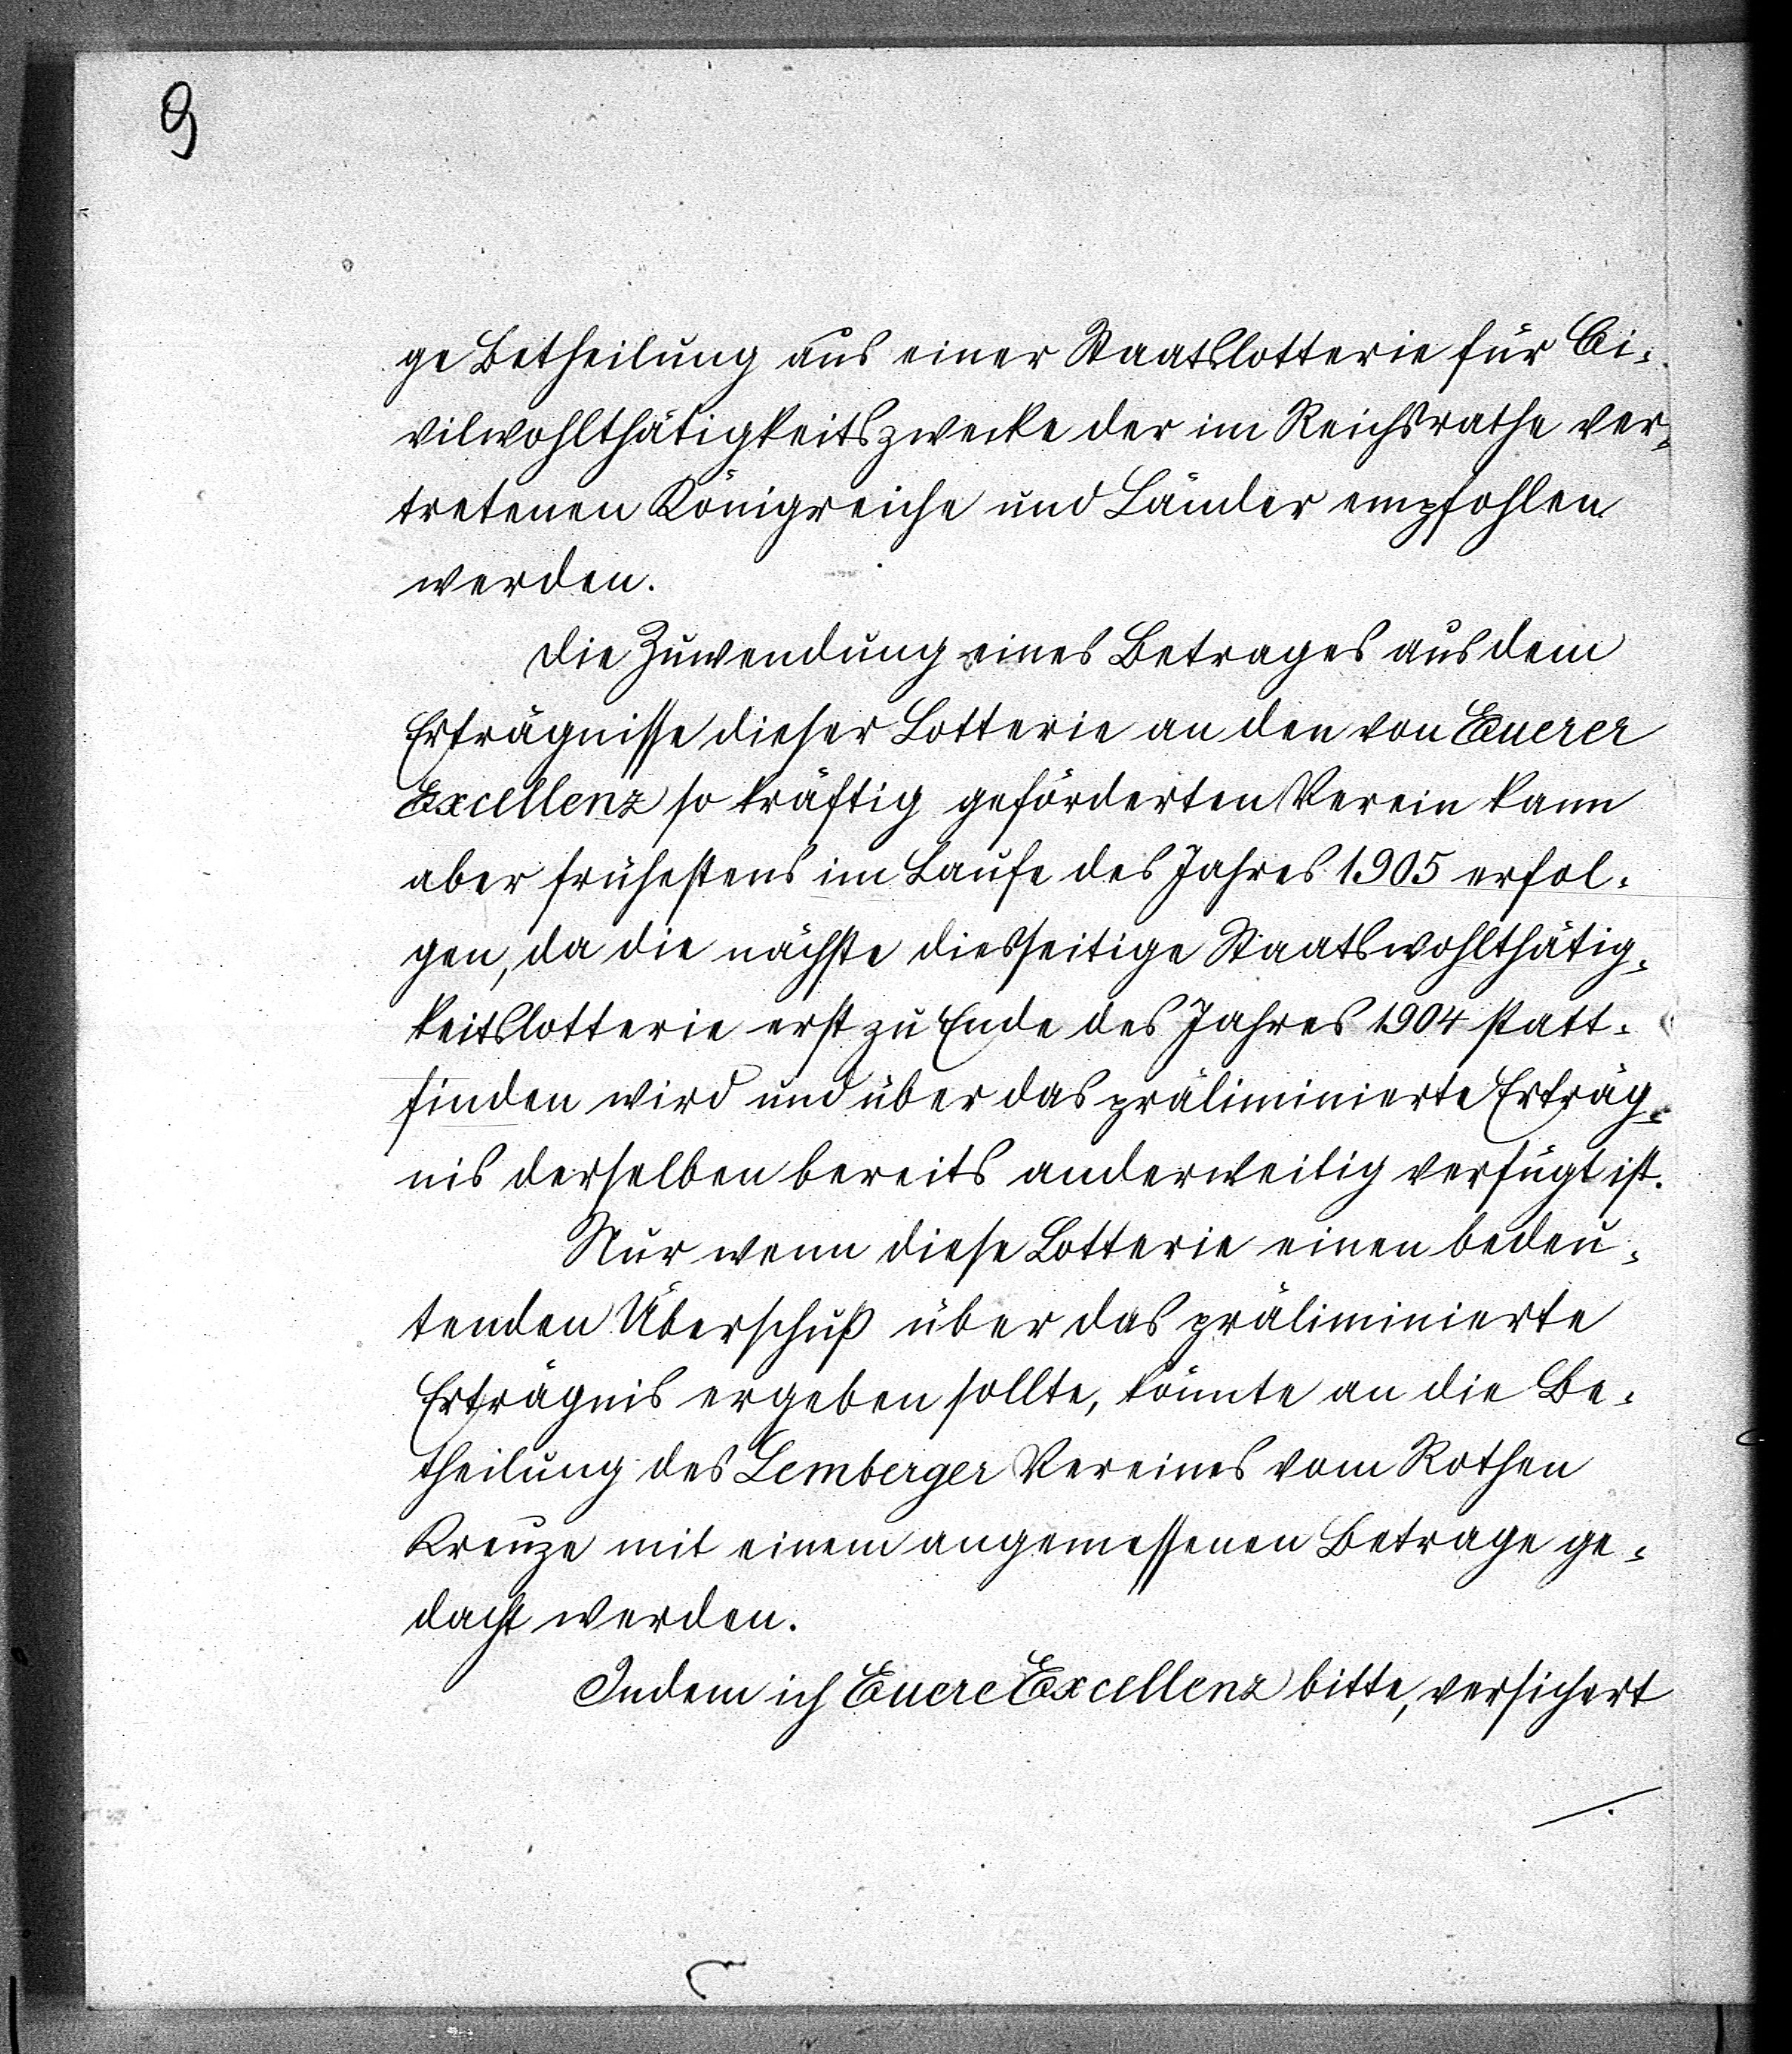 9
ge Betheilung aus einer Staatslotterie für Ci-
vilwohlthätigkeitszwecke der im Reichsrathe ver-
tretenen Königreiche und Länder empfohlen
werden.
Die Zuwendung eines Betrages aus dem
Erträgnisse dieser Lotterie an den von Euerer
Excellenz so kräftig geförderten Verein kann
aber frühestens im Laufe des Jahres 1905 erfol-
gen, da die nächste diesseitige Staatswohlthätig-
keitslotterie erst zu Ende des Jahres 1904 statt-
finden wird und über das präliminierte Erträg-
nis derselben bereits anderweitig verfügt ist.
Nur wenn diese Lotterie einen bedeu-
tenden Überschuß über das präliminierte
Erträgnis ergeben sollte, könnte an die Be-
theilung des Lemberger Vereines vom Rothen
Kreuze mit einem angemessenen Betrage ge-
dacht werden.
Indem ich Euere Excellenz bitte, versichert